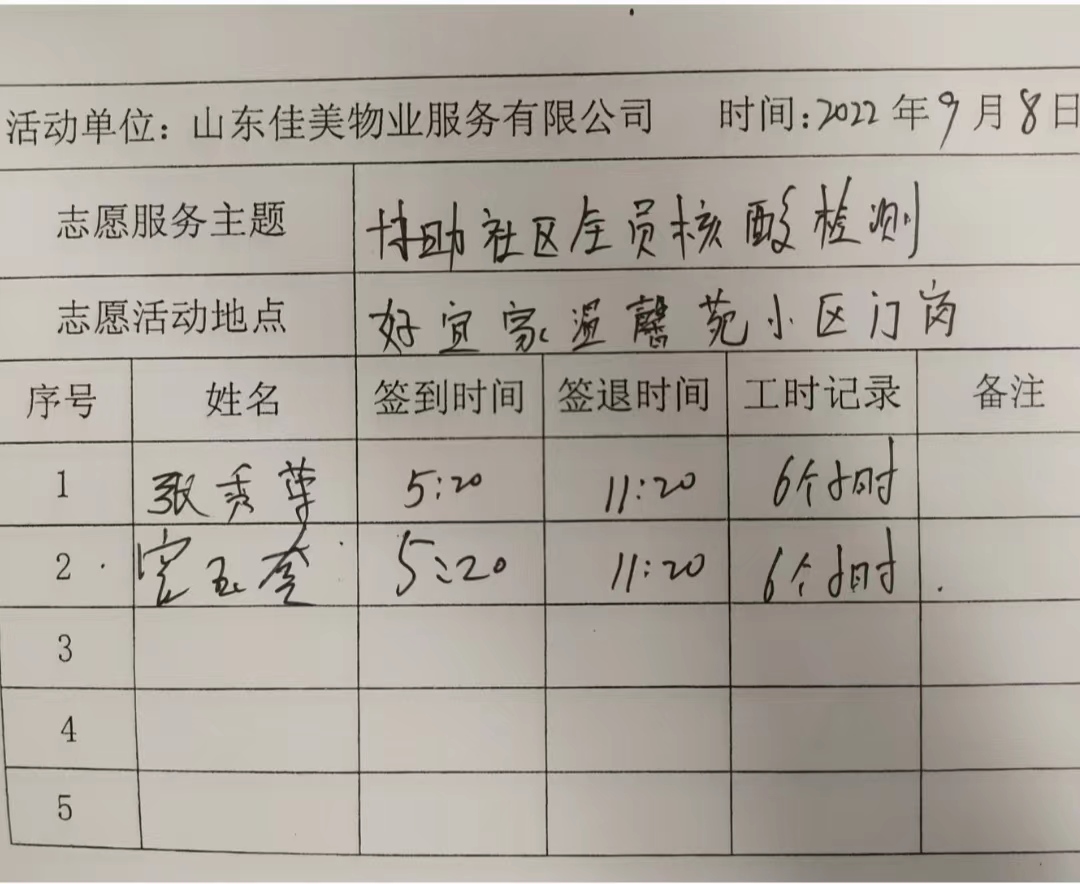 活动单位：山东佳美物业服务有限公司 时间：2022年9月8日
志愿服务主题 协助社区全员核酸检测
志愿活动地点 好宜家温馨苑小区门岗
序号 姓名 签到时间 签退时间 工时记录 备注
1 张秀苹 5:20 11:20 6个小时
2 玉 5:20 11:20 6个小时
3
4
5